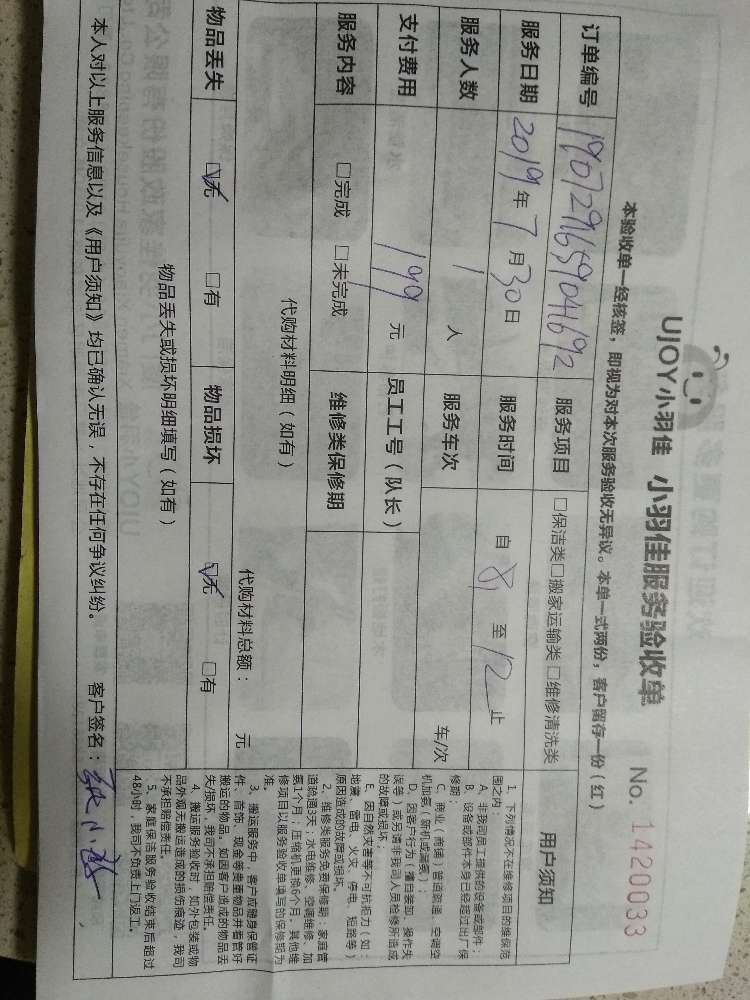 UJOY小羽佳 小羽佳服务验收单 No. 1420033
本验收单一经核签，即视为对本次服务验收无异议。本单一式两份，客户留存一份（红）
订单编号 1907291659041692 服务项目 □保洁类□搬家运输类□维修清洗类
服务日期 2019年7月30日 服务时间 自 8 至 12 止
服务人数 1 人 服务车次 车/次
支付费用 199 元 员工工号（队长）
服务内容 □完成 □未完成 维修类保修期
代购材料明细（如有）
代购材料总额： 元
物品丢失 ☑无 □有 物品损坏 ☑无 □有
物品丢失或损坏明细填写（如有）
本人对以上服务信息以及《用户须知》均已确认无误，不存在任何争议纠纷。 客户签名：
用户须知
1、下列情况不在维修项目的维保范
围之内：
A、非我司员工提供的设备或部件；
B、设备或部件本身已经超过出厂保
修期；
C、商业（商铺）管道疏通、空调空
机加氨（新机或漏氨）；
D、因客户行为（擅自装卸、操作失
误等）或另请非我司人员检修所造成
的故障或损坏；
E、因自然灾害等不可抗拒力（如：
地震、雷电、火灾、停电、短路等）
原因造成的故障或损坏。
2、维修类服务免费保修期：家庭管
道疏通3天；水电维修、空调维修、加
氨1个月；压缩机更换6个月；其他维
修项目以服务验收单填写的保修期为
准。
3、搬运服务中，客户应随身保管证
件、首饰、现金等贵重物品并看管好
搬运的物品，如因客户造成的物品丢
失/损坏，我司不承担赔偿责任。
4、搬运服务验收时，如外包装或物
品外观无搬运造成的损伤痕迹，我司
不承担赔偿责任。
5、家庭保洁服务验收结束后超过
48小时，我司不负责上门返工。